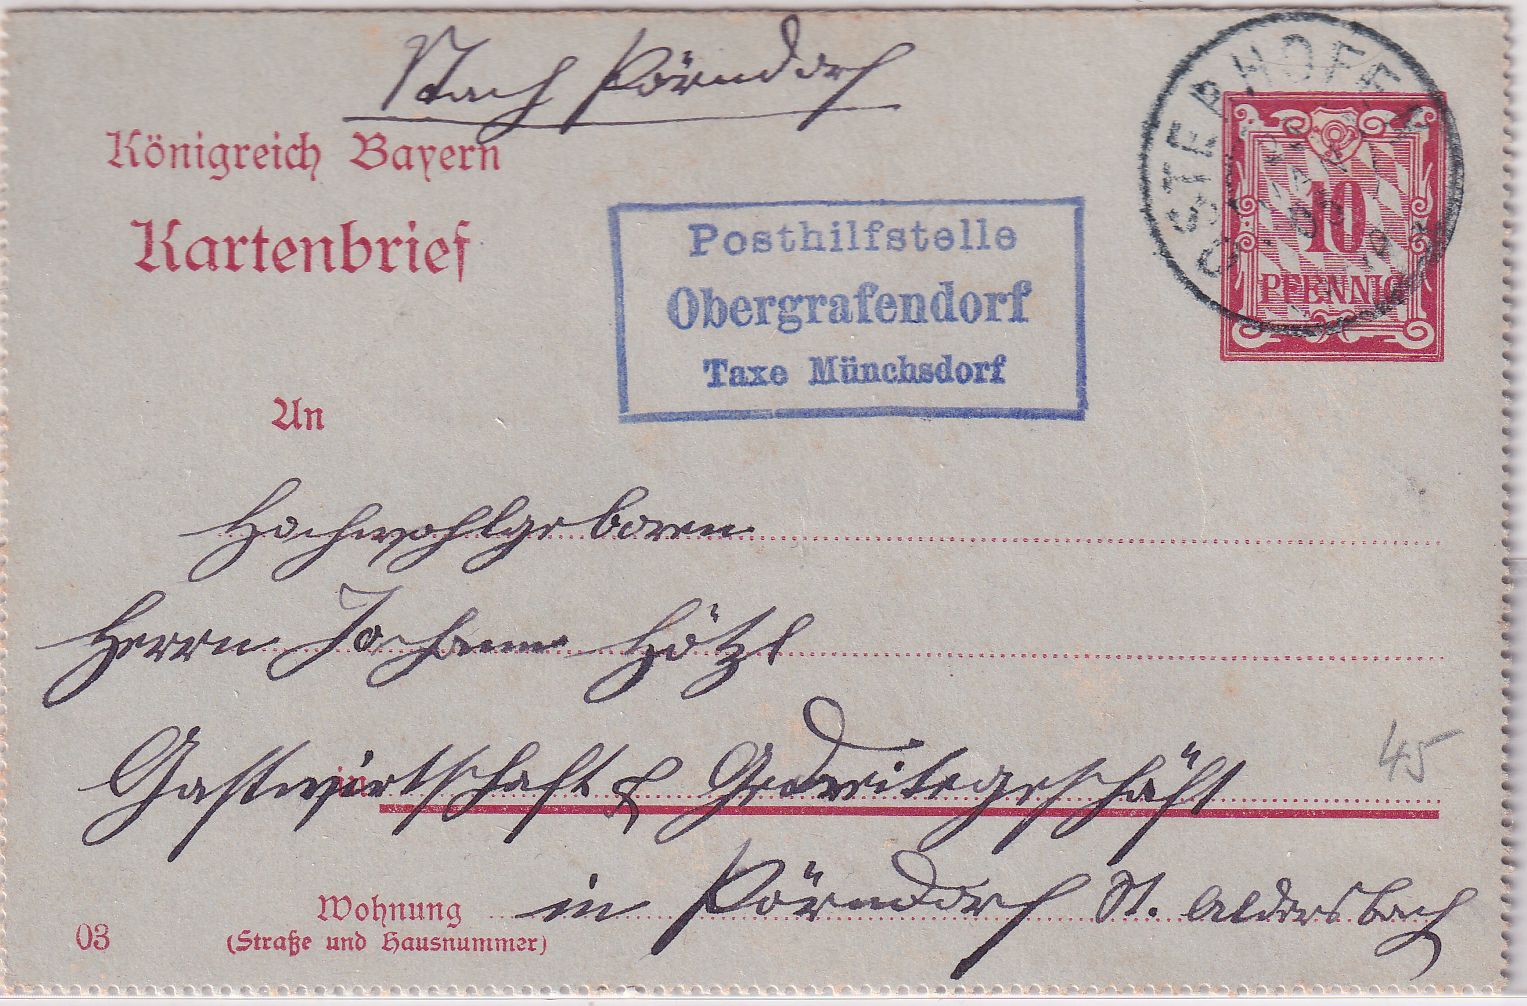 Nach Pörndorf
Königreich Bayern
Kartenbrief
Posthilfstelle
Obergrafendorf
Taxe Münchsdorf
OSTERHOFEN
10
PFENNIG
An
Hochwohlgeboren
Herrn Johann Hötzl
Gastwirtschaft & Gedreitegeschäft
45
in Pörndorf St. Aldersbach
Wohnung
(Straße und Hausnummer)
03